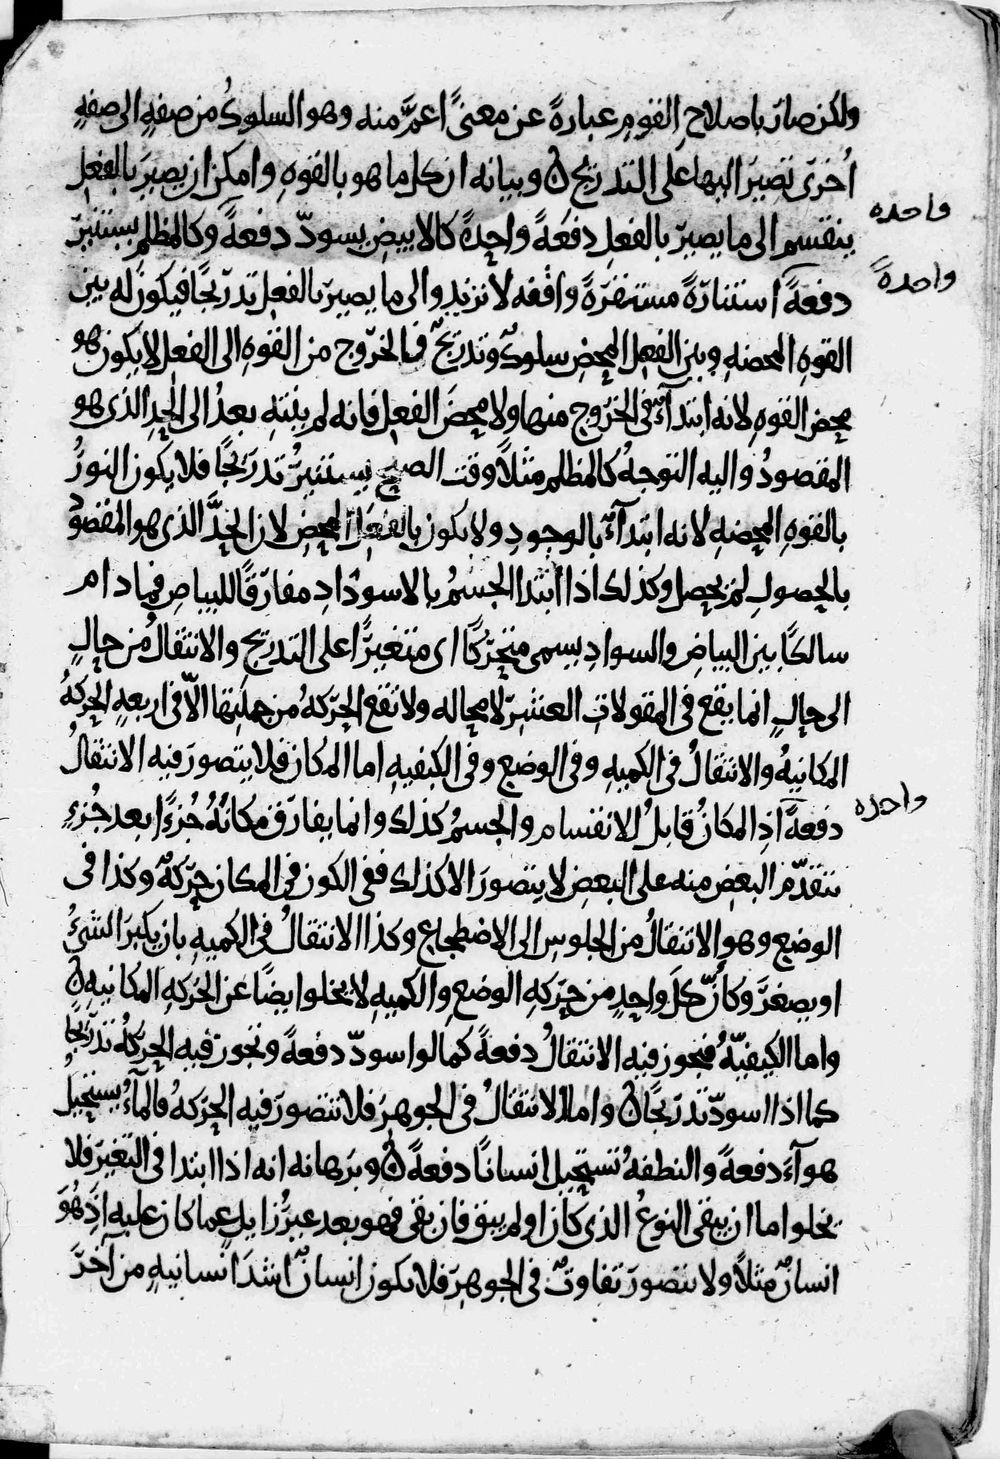 ولكن صار باصلاح القوم عبارةً عن معنىً اعمَّ منه وهو السلوكُ من صفةٍ الى صفةٍ
اُخرى تصير اليها على التدريج ن وبيانه ان كل ما هو بالقوه وامكن ان يصير بالفعل
ينقسم الى ما يصير بالفعل دفعةً واحدةً كالابيض يسودّ دفعةً وكالمظلم يستنير
واحده
دفعةً استنارةً مستقرةً واقفه لا تزيد والى ما يصير بالفعل تدريجًا فيكون له بين
واحدةً
القوهِ المحضهِ وبين الفعل المحض سلوكٌ وتدريجٌ فالخروج من القوه الى الفعل لا يكون هو
محض القوهِ لانه ابتدآء في الخروج منها ولا محضَ الفعل فانه لم ينته بعدُ الى الحدِ الذى هو
المقصودُ واليه التوجهُ كالمظلم مثلاً وقت الصبح يستنيرُ تدريجًا فلا يكون النورُ
بالقوهِ المحضهِ لانه ابتدآءٌ بالوجودِ ولا يكون بالفعل المحض لان الحدَّ الذى هو المقصودُ
بالحصولِ لم يحصل وكذلك اذا ابتدا الجسمُ بالاسودادِ مفارقًا للبياض فما دام
سالكًا بين البياض والسوادِ يسمى متحركًا اى متغيرًا على التدريج والانتقالُ من حالٍ
الى حالٍ انما يقع فى المقولاتِ العشر لا محاله ولا تقع الحركهُ من جملتها الّا فى اربعهٍ الحركهُ
المكانيهُ والانتقالُ فى الكميهِ وفى الوضع وفى الكيفيهِ اما المكان فلا يتصور فيه الانتقالُ
دفعةً اذِ المكانُ قابلُ الانقسام والجسمُ كذلك وانما يفارق مكانُهُ جُزءًا بعد جُزءٍ
واحده
يتقدّم البعض منه على البعض لا يتصور الا كذلك ففى الكون فى المكان حركةٌ وكذا فى
الوضع وهو الانتقالُ من الجلوس الى الاضطجاع وكذا الانتقالُ فى الكميهِ بان يكبر الشئُ
او يصغرَّ وكأنَّ كلَ واحدٍ من حركهِ الوضع والكميهِ لا يخلوا ايضًا عن الحركهِ المكانيهِ ن
واما الكيفيّهُ فيجوز فيه الانتقالُ دفعةً كما لو اسودّ دفعةً وتجوز فيه الحركهُ تدريجًا
كما اذا اسودّ تدريجًا ن واما الانتقالُ فى الجوهر فلا تتصور فيه الحركهُ فالمآءُ يستحيل
هوآءً دفعةً والنطفهُ تستحيل انسانًا دفعةً ن وبرهانه انه اذا ابتدا فى التغير فلا
يخلوا اما ان يبقى النوعُ الذى كان او لم يبق فان بقى فهو بعد غيرُ زايلٍ عما كان عليه اذ هُوَ
انسانٌ مثلاً ولا يتصور تفاوتٌ فى الجوهر فلا يكون انسانٌ اشدَ انسانيهٍ من آخرَ